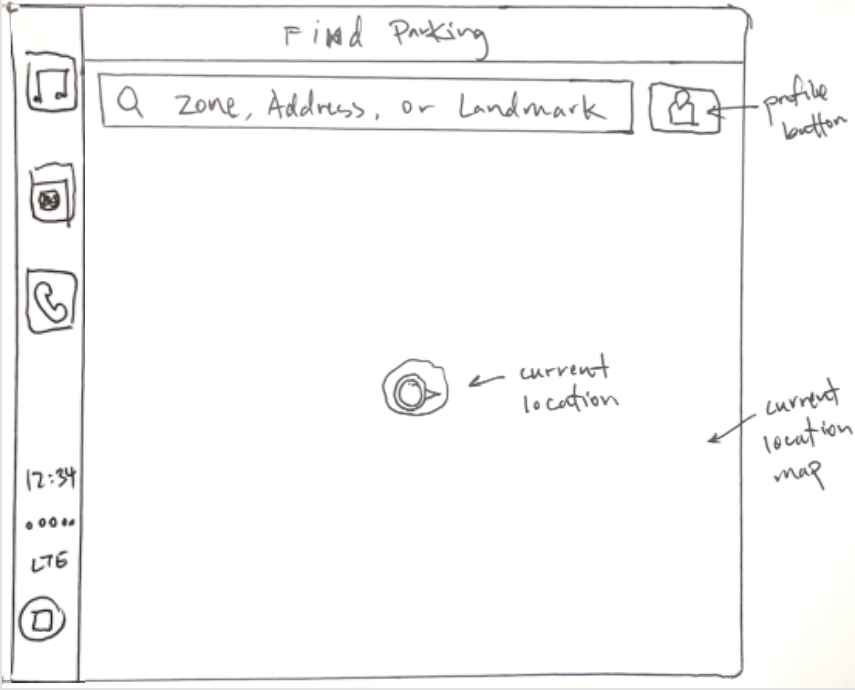 Find Parking
zone, Address, or Landmark
profile
button
current
location
current
location
map
12:34
LTE